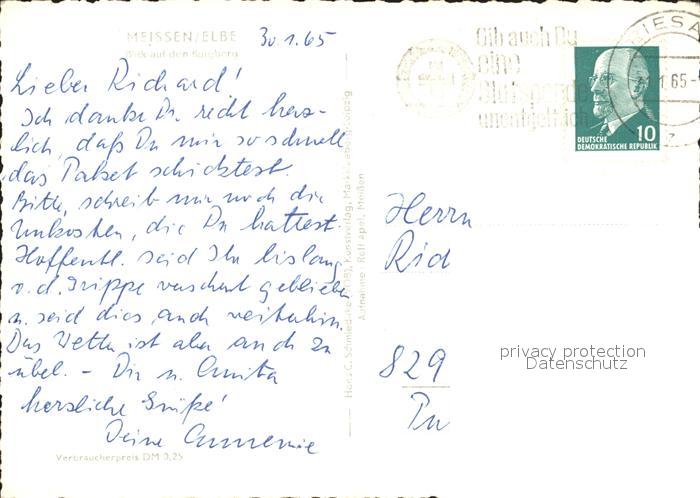 MEISSEN/ELBE
Blick auf den Burgberg
30.1.65
Lieber Richard!
Ich danke Dir recht herz-
lich, daß Du mir so schnell
das Paket schicktest.
Bitte, schreib mir noch die
Unkosten, die Du hattest.
Hoffentl. seid Ihr bislang
v. d. Grippe verschont geblieben
u. seid dies auch weiterhin.
Das Wetter ist aber auch zu
übel. - Dir u. Anita
herzliche Grüße!
Deine Annemie
Verbraucherpreis DM 0,25
Aufnahme: Rolf Apel, Meißen
Gib auch Du
eine
Blutspende
unentgeltlich
RIESA
1.65-
10
DEUTSCHE
DEMOKRATISCHE REPUBLIK
Herrn
Rid
829
Pu
privacy protection
Datenschutz